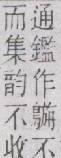 通鑑作不
而集韵不收